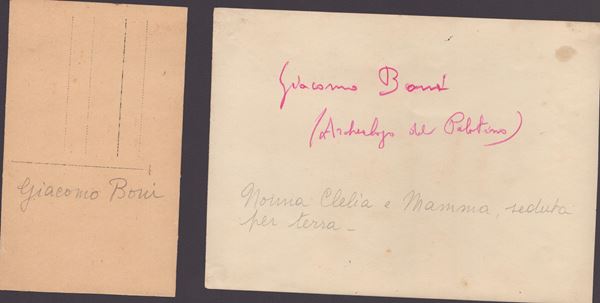 Giacomo Boni
Giacomo Boni
(Archeologo del Palatino)
Nonna Clelia e Mamma, seduta
per terra -